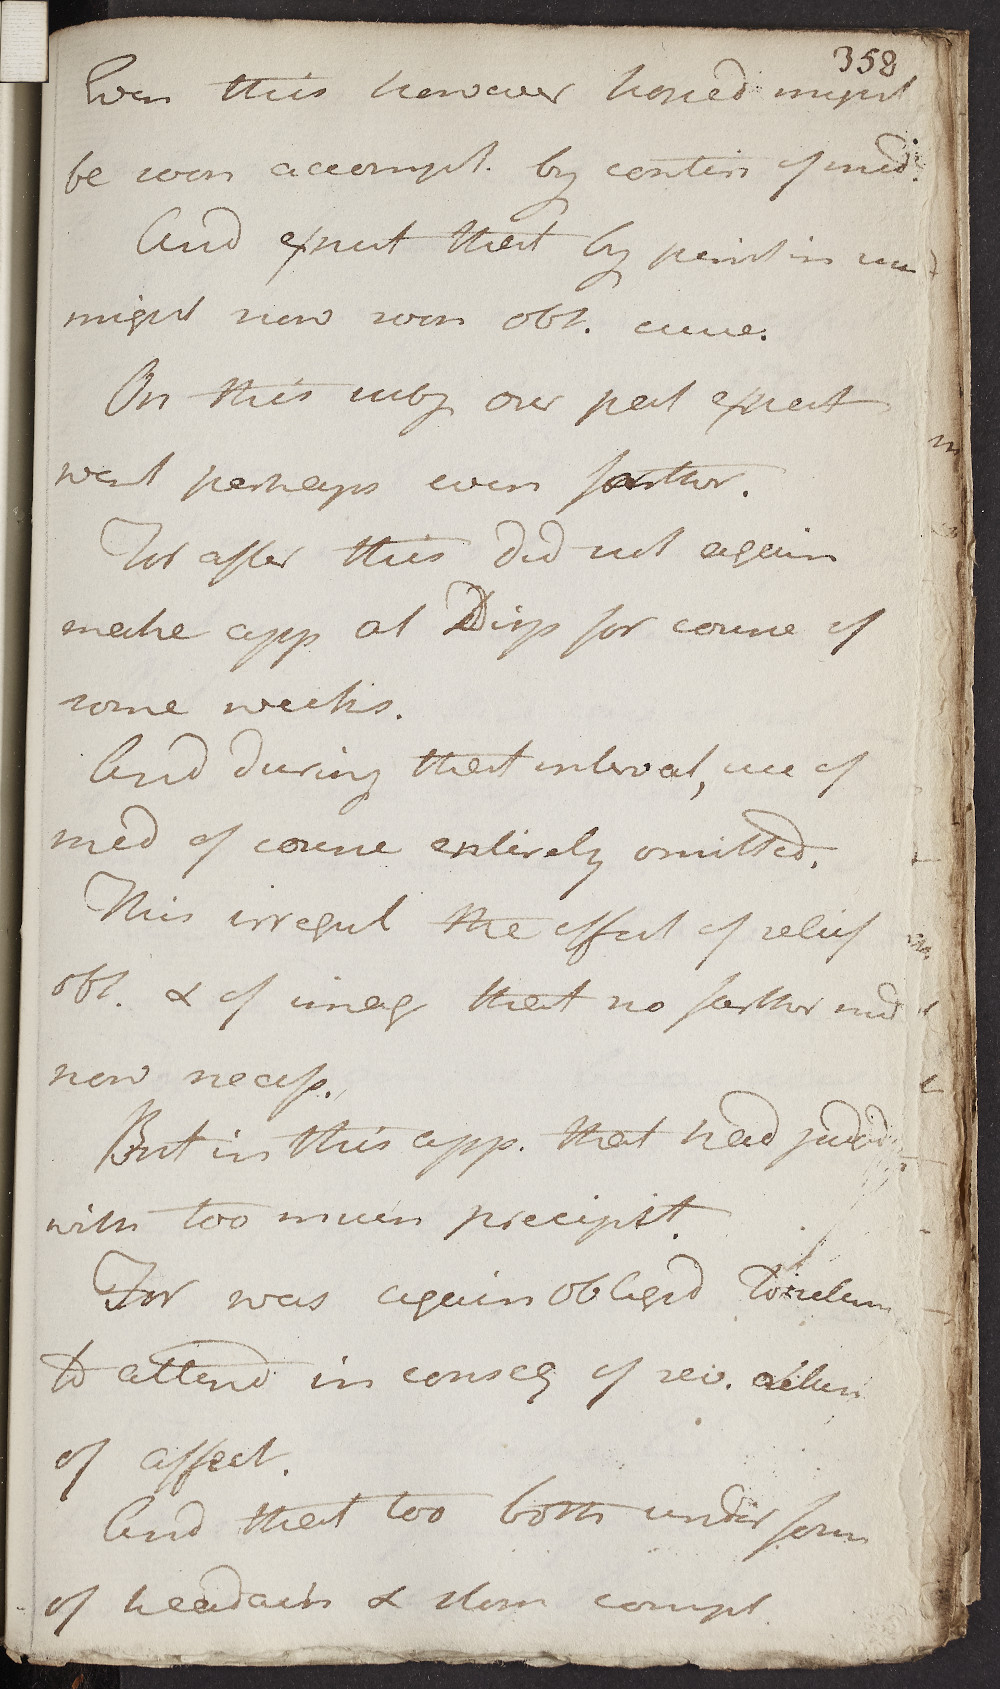 358
Even this however hoped might
be soon accompt. by contin of med.
And expect that by persist in use
might now soon obt. cure.
On this subj our pat expect
went perhaps even farther.
For after this did not again
make app at Disp for course of
some weeks.
And during that interval, use of
med of course entirely omitted.
This irregul the effect of relief
obt. & of imag that no farther med
now necess.
But in this app. that had judgd
with too much precipit.
For was again obliged to return
to attend in conseq of rev. alter
of affect.
And that too both under form
of headach & stom compt